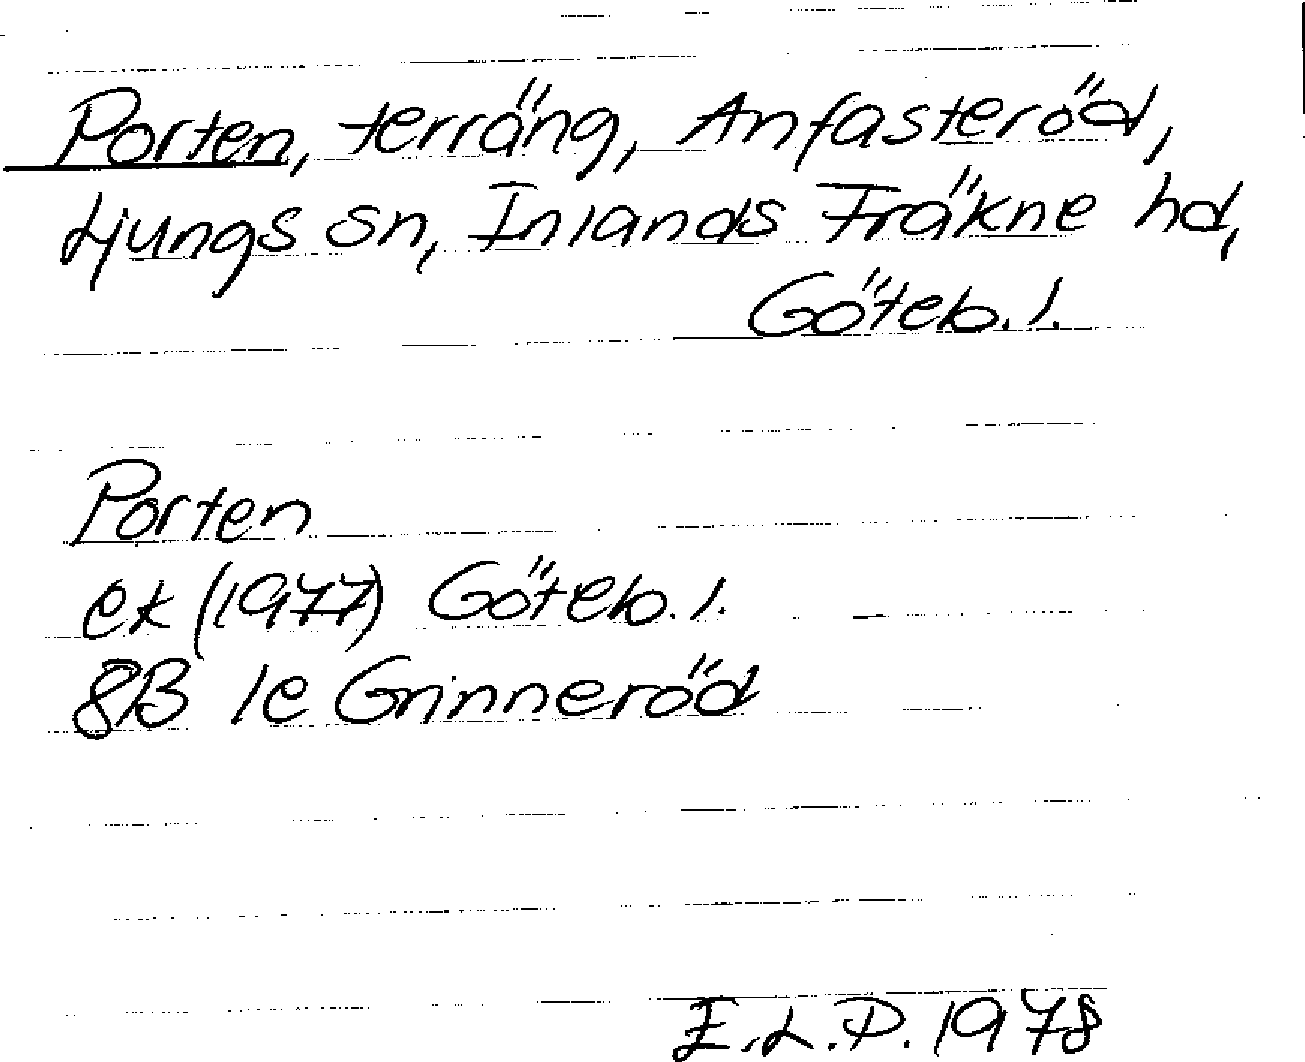 Porten, terräng, Anfasteröd,
Ljungs sn, Inlands Fräkne hd,
Göteb. l.
Porten
ek (1977) Göteb. l.
8B 1e Grinneröd
E.L.P. 1978